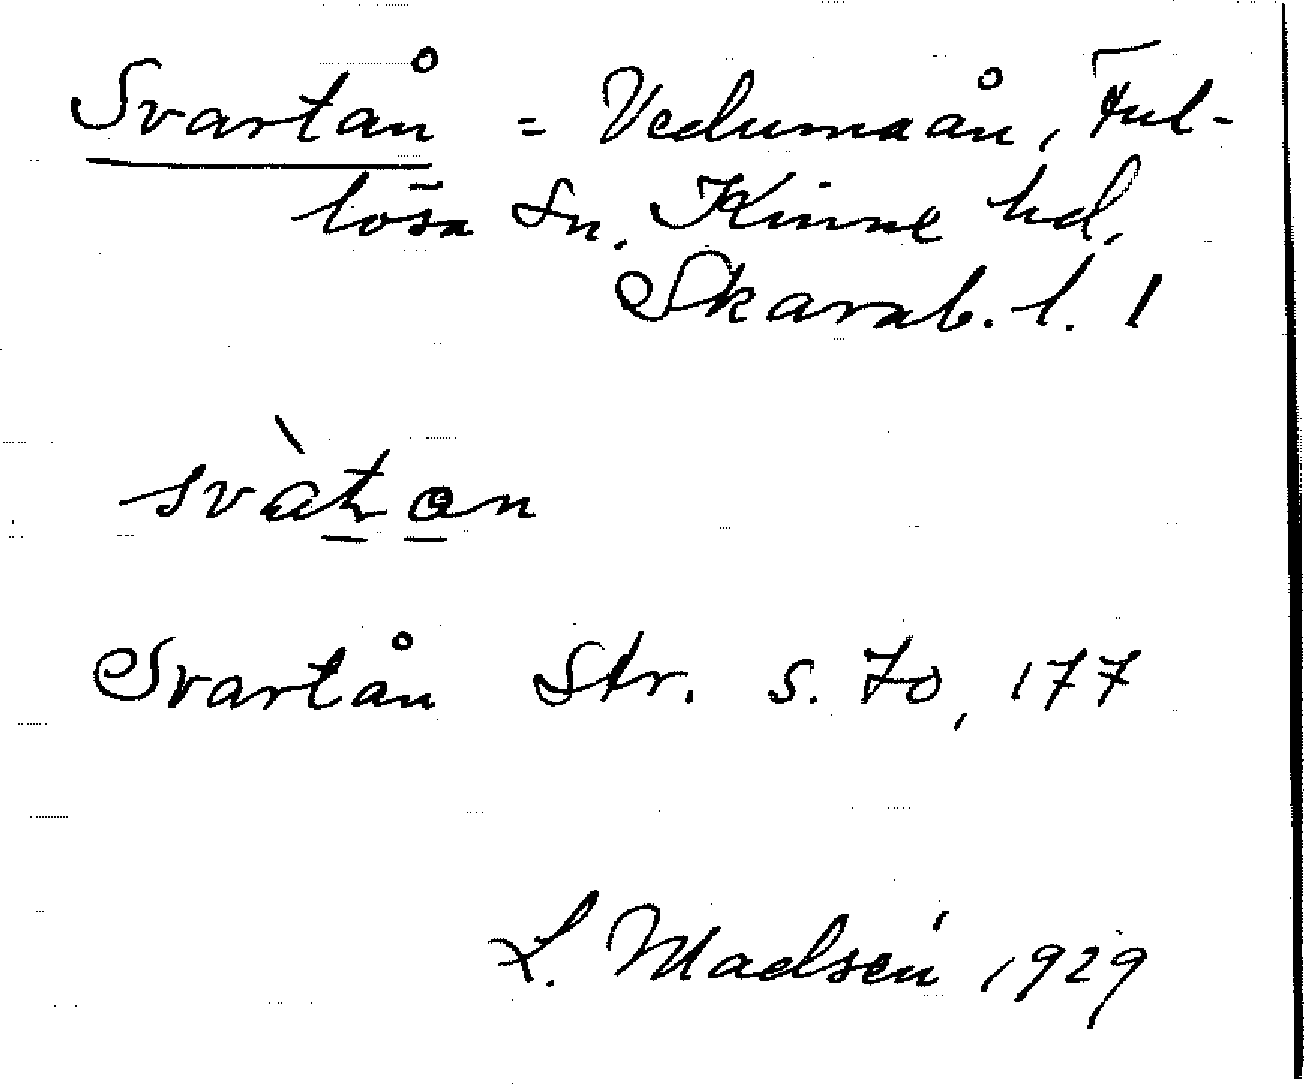 Svartån = Vedumaån, Ful-
lösa sn. Kinne hd,
Skarab. l. 1
svàt ɷn
Svartån Str. s. 70, 177
L. Madsén 1929